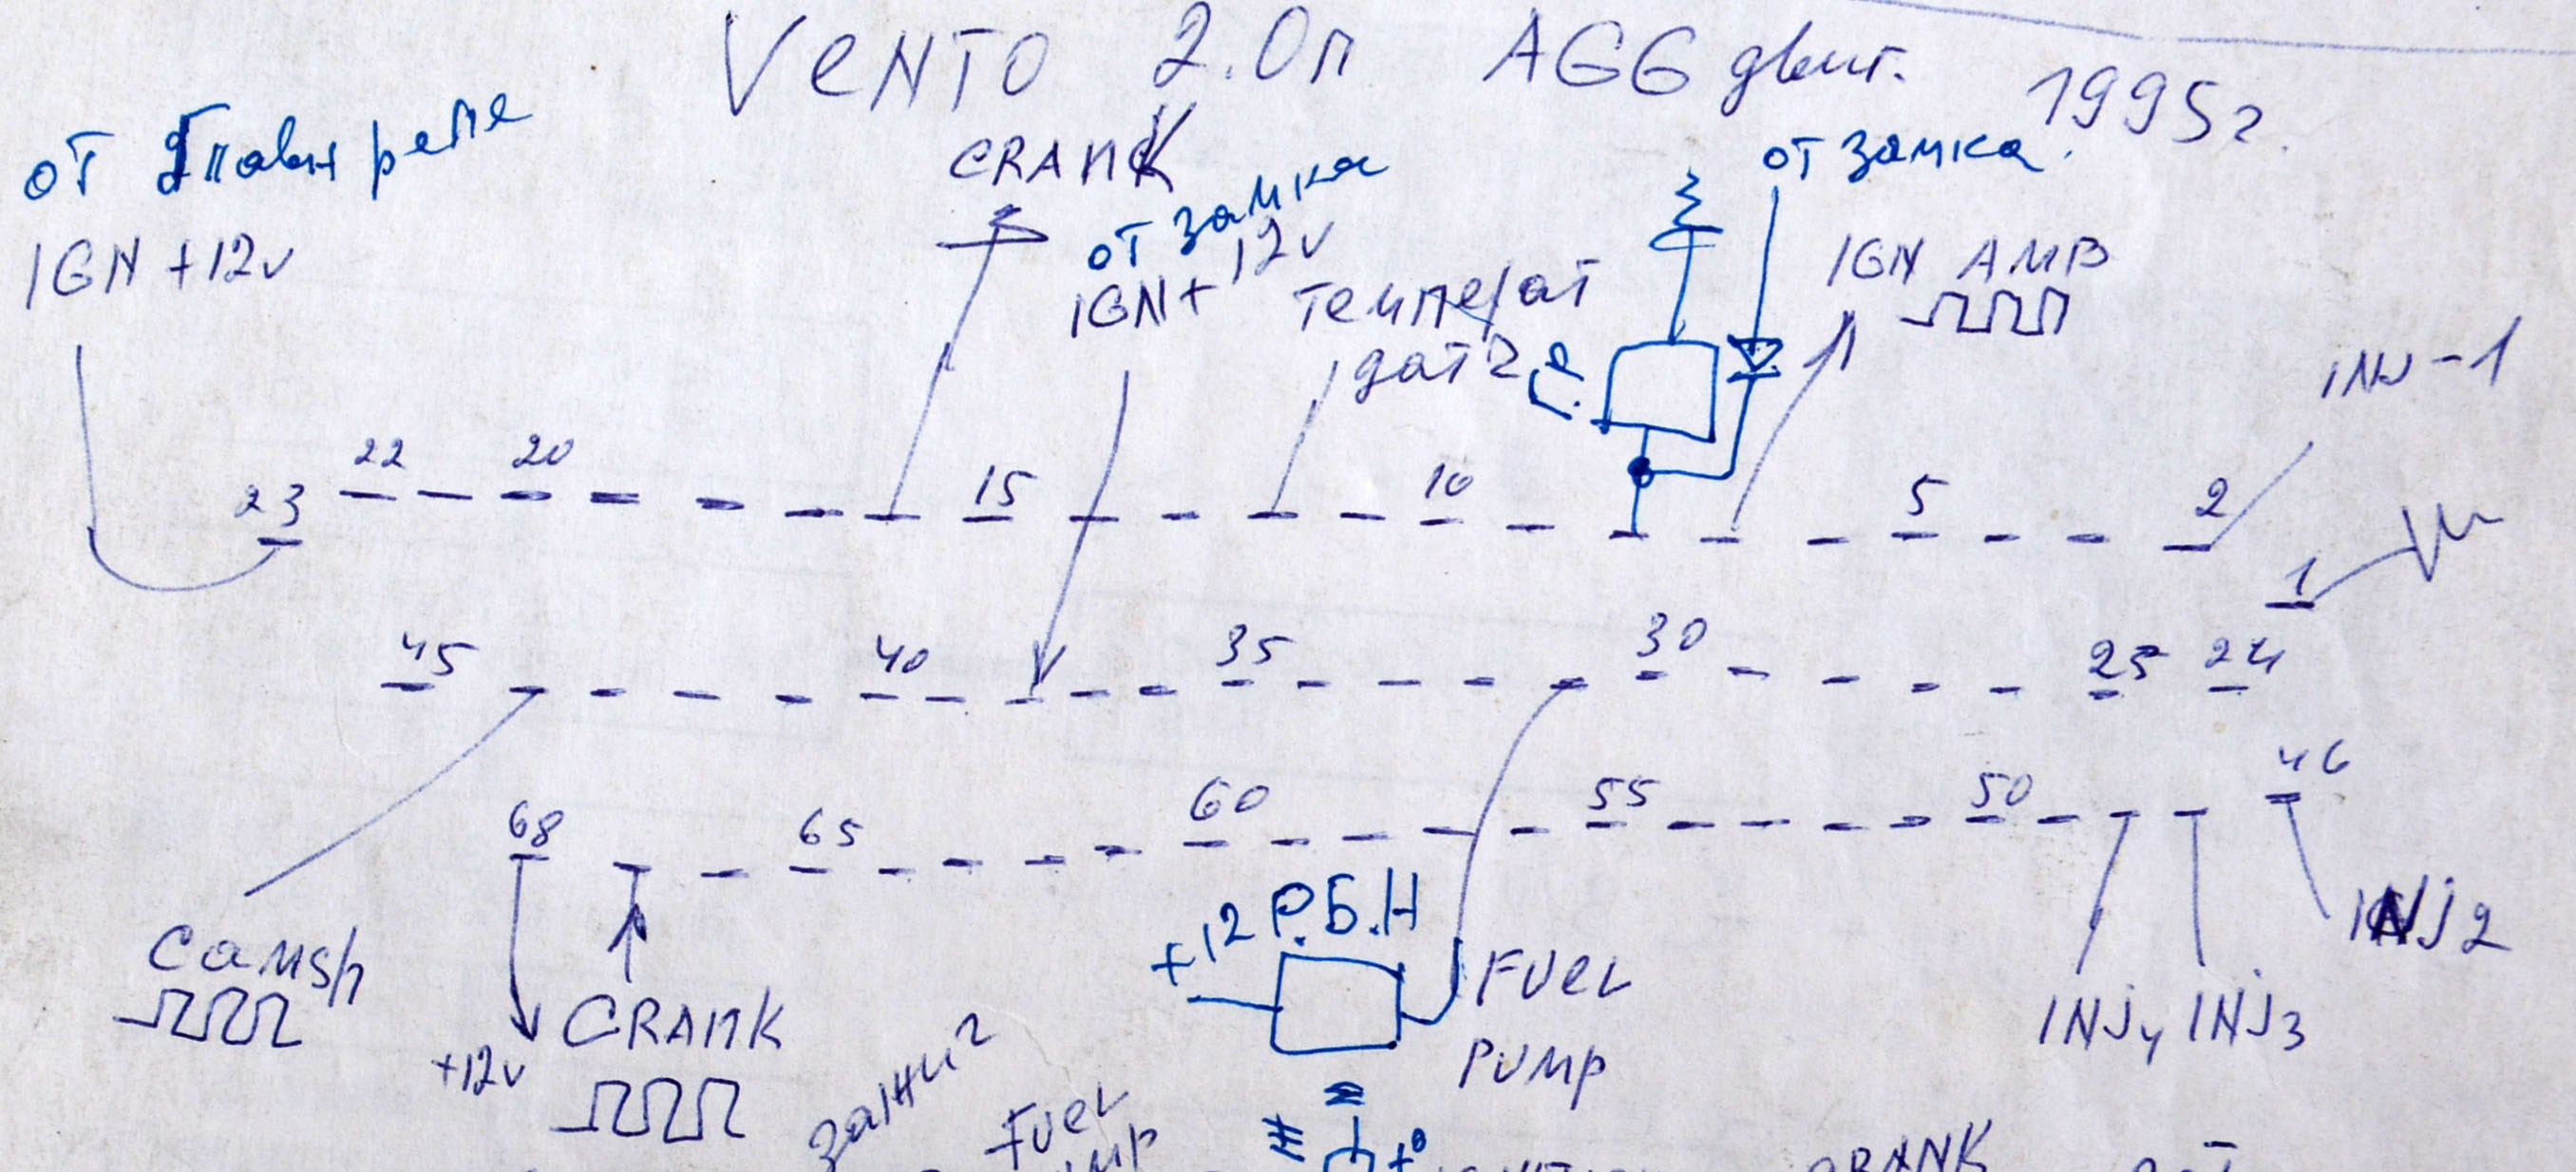 VENTO 2.0л AGG двиг. 1995г.
от главн реле
IGN +12v
CRANK
от замка
IGN+ 12v
температ
дат
от замка.
IGN AMB
INJ-1
23 22 20 15 10 5 2
1
45 40 35 30 25 24
46
68 65 60 55 50
Camsh
+12v
CRANK
+12 Р.Б.Н
FUEL
PUMP
INJ4 INJ3
INJ2
зажиг
FUEL
CRANK